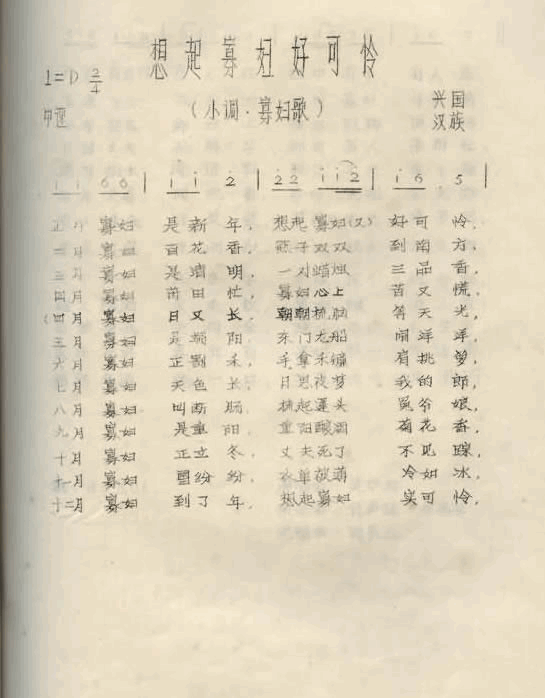 想起寡妇好可怜
1=D 2/4 （小调·寡妇歌） 兴国
中速 汉族
i i 6 6 | i i 2 | 2 2 i i 2 | i 6 5 |
正月寡妇 是新年， 想起寡妇(又) 好可怜，
二月寡妇 百花香， 燕子双双 到南方，
三月寡妇 是清明， 一对蜡烛 三品香，
四月寡妇 莳田忙， 寡妇心上 苦又慌，
(四月寡妇 日又长， 朝朝梳头 等天光，
月寡妇 阳， 东门龙船 闹洋洋，
六月寡妇 正割禾， 手拿禾镰 肩挑箩，
七月寡妇 天色长， 日思夜梦 我的郎，
八月寡妇 叫断肠， 梳起头 冤爷娘，
九月寡妇 是重阳， 重阳酒 菊花香，
十月寡妇 正立冬， 丈夫死了 不见踪，
十一月寡妇 雪纷纷， 衣单被薄 冷如冰，
十二月寡妇 到了年， 想起寡妇 实可怜，